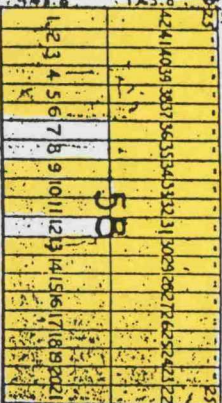 42 41 40 39 38 37 36 35 34 33 32 31 30 29 28 27 26 25 24 23 22
58
1 2 3 4 5 6 7 8 9 10 11 12 13 14 15 16 17 18 19 20 21